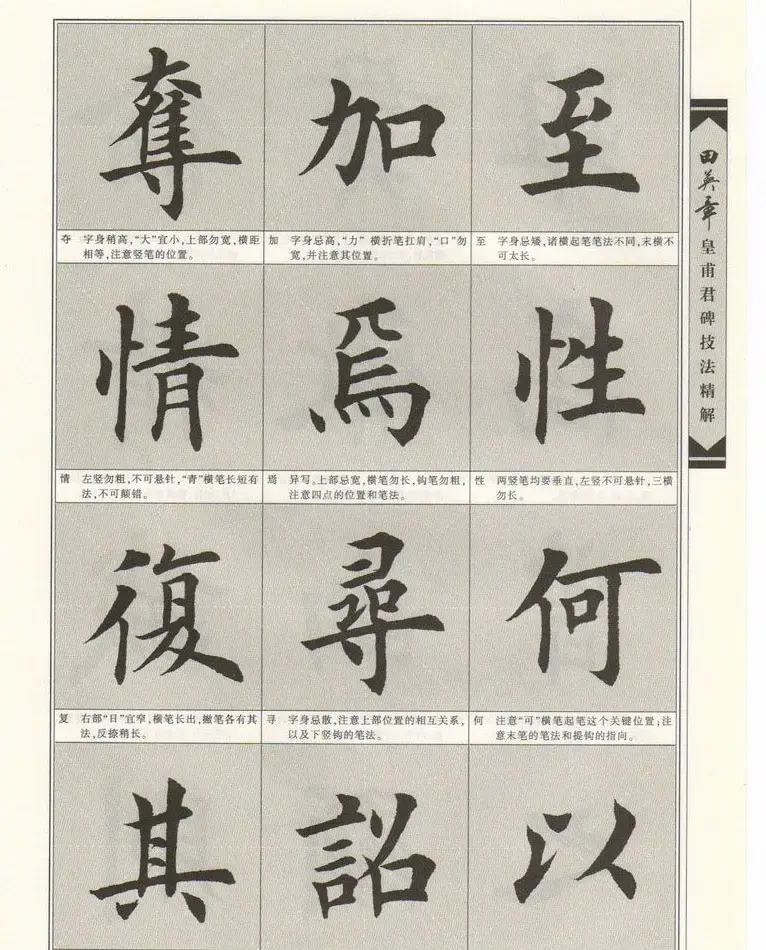 奪 加 至
夺 字身稍高,“大”宜小,上部勿宽,横距
相等,注意竖笔的位置。
加 字身忌高,“力”横折笔扛肩,“口”勿
宽,并注意其位置。
至 字身忌矮,诸横起笔笔法不同,末横不
可太长。
情 焉 性
情 左竖勿粗,不可悬针,“青”横笔长短有
法,不可颠错。
焉 异写。上部忌宽,横笔勿长,钩笔勿粗,
注意四点的位置和笔法。
性 两竖笔均要垂直,左竖不可悬针,三横
勿长。
復 尋 何
复 右部“日”宜窄,横笔长出,撇笔各有其
法,反捺稍长。
寻 字身忌散,注意上部位置的相互关系,
以及下竖钩的笔法。
何 注意“可”横笔起笔这个关键位置;注
意末笔的笔法和提钩的指向。
其 詔 以
田英章
皇甫君碑技法精解